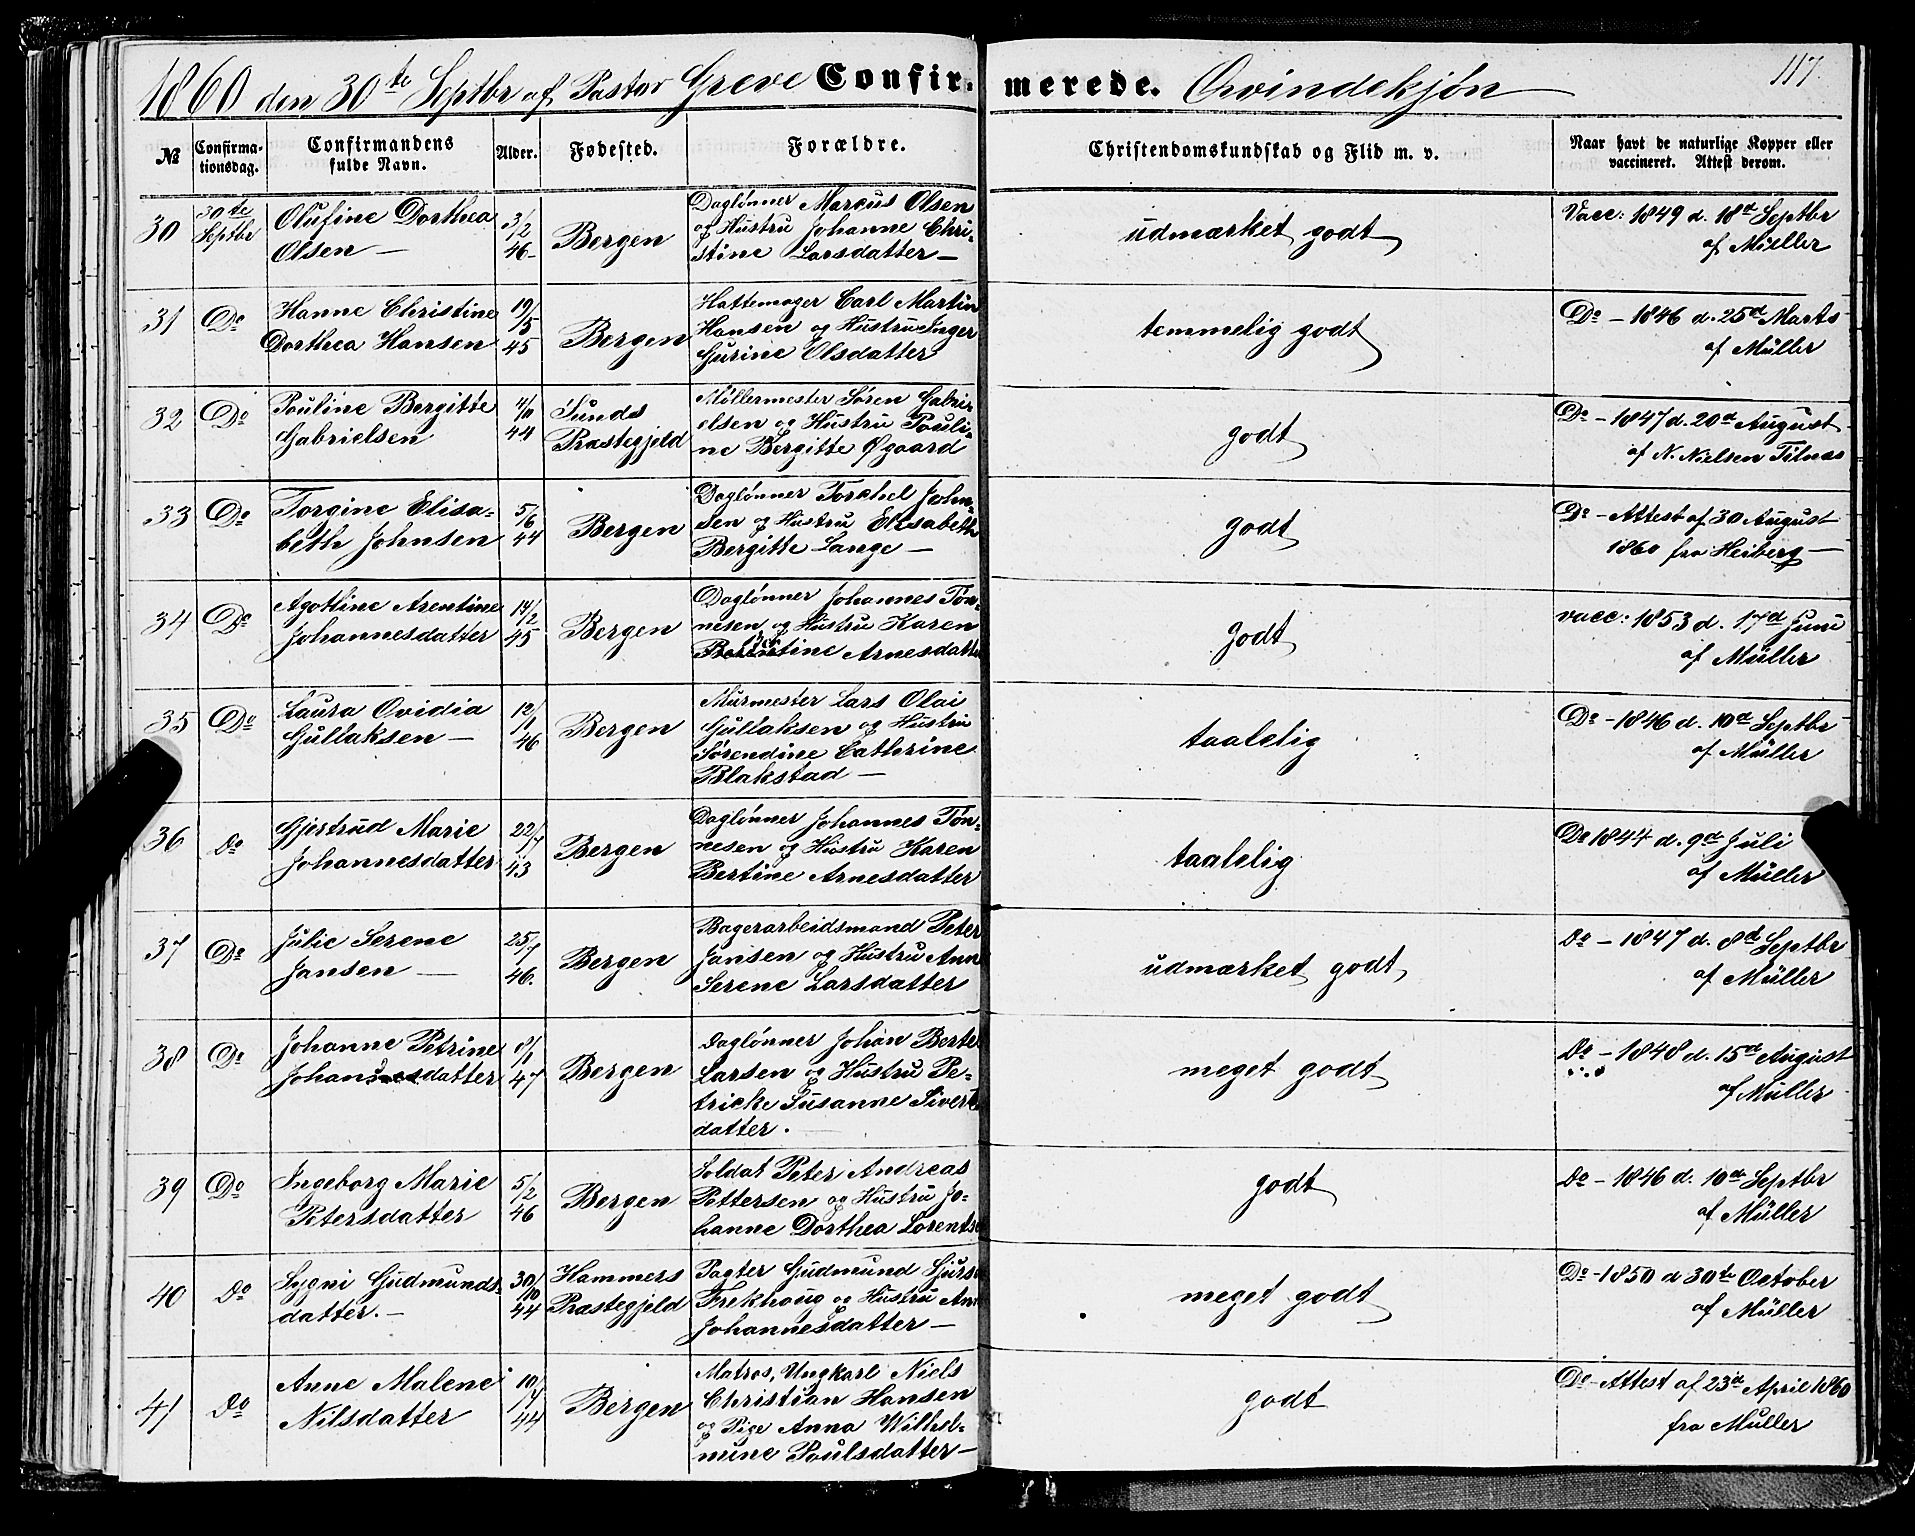 1860 den 30te Septbr af Pastor Greve Confir- merede. Qvindekjøn 117.
№ Confirma-tionsdag. Confirmandens fulde Navn. Alder. Fødested. Forældre. Christendomskundskab og Flid m. v. Naar havt de naturlige Kopper eller vaccineret. Attest derom.
30 30te Olufine Dorthea 3/2 Bergen Daglønner Marcus Olsen udmærket godt Vacc: 1849 d. 18d Septbr
Septbr Olsen — 46 og Hustru Johanne Chri- af Müller
stine Larsdatter —
31 Do Hanne Christine 19/5 Bergen Hattemager Carl Martin temmelig godt Do — 1846 d. 25d Marts
Dorthea Hansen 45 Hansen og Hustru Inger af Müller
Gurine Olsdatter
32 Do Pouline Bergitte 44 Sunds Møllermester Søren Gabri- godt Do — 1847 d. 20d August
Gabrielsen Præstegjeld elsen og Hustru Pouli- af N. Nielsen
ne Bergitte Øgaard
33 Do Torgine Elisa- 5/6 Bergen Daglønner Torchel John- godt Do — Attest af 30 August
beth Johnsen 44 sen og Hustru Elisabeth 1860 fra Heiberg —
Bergitte Lange —
34 Do Agothine Arentine 14/2 Bergen Daglønner Johannes Tøn- godt vacc: 1853 d. 17d Juni
Johannesdatter 45 nesen og Hustru Karen af Müller
Arnesdatter
35 Do Laura Ovidia 12/1 Bergen Murmester Lars Olai taalelig Do — 1846 d. 10d Septbr
Gullaksen — 46 Gullaksen og Hustru af Müller
Sørendine Cathrine
Blakstad —
36 Do Gjertrud Marie 22/7 Bergen Daglønner Johannes Tøn- taalelig Do 1844 d. 9d Juli
Johannesdatter 43 nesen og Hustru Karen af Müller
Bertine Arnesdatter
37 Do Julie Serene 25/7 Bergen Bagerarbeidsmand Peter udmærket godt Do — 1847 d. 8d Septbr
Jansen — 46. Jansen og Hustru Ann af Müller
Serene Larsdatter
38 Do Johanne Petrine 8/1 Bergen Daglønner Johan Berte meget godt Do — 1848 d. 15d August
Johansdatter 47 Larsen og Hustru Pe- af Müller
tricke Susanne Sivert
datter.
39 Do Ingeborg Marie 5/2 Bergen Soldat Peter Andreas godt Do — 1846 d. 10de Septbr
Petersdatter 46 Pettersen og Hustru Jo- af Müller
hanne Dorthea Lorents
40 Do Sygni Gudmunds- 30/10 Hammers Pagter Gudmund Gjurs meget godt Do — 1850 d 30te October
datter. — 44 Præstegjeld Frekhoug og Hustru An af Müller
Johannesdatter —
41 Do Anne Malene 10/7 Bergen Matros, Ungkarl Niels godt Do — Attest af 23de April 1860
Nilsdatter 44 Christian Hansen fra Müller
og Pige Anna Wilhel-
mine Poulsdatter —